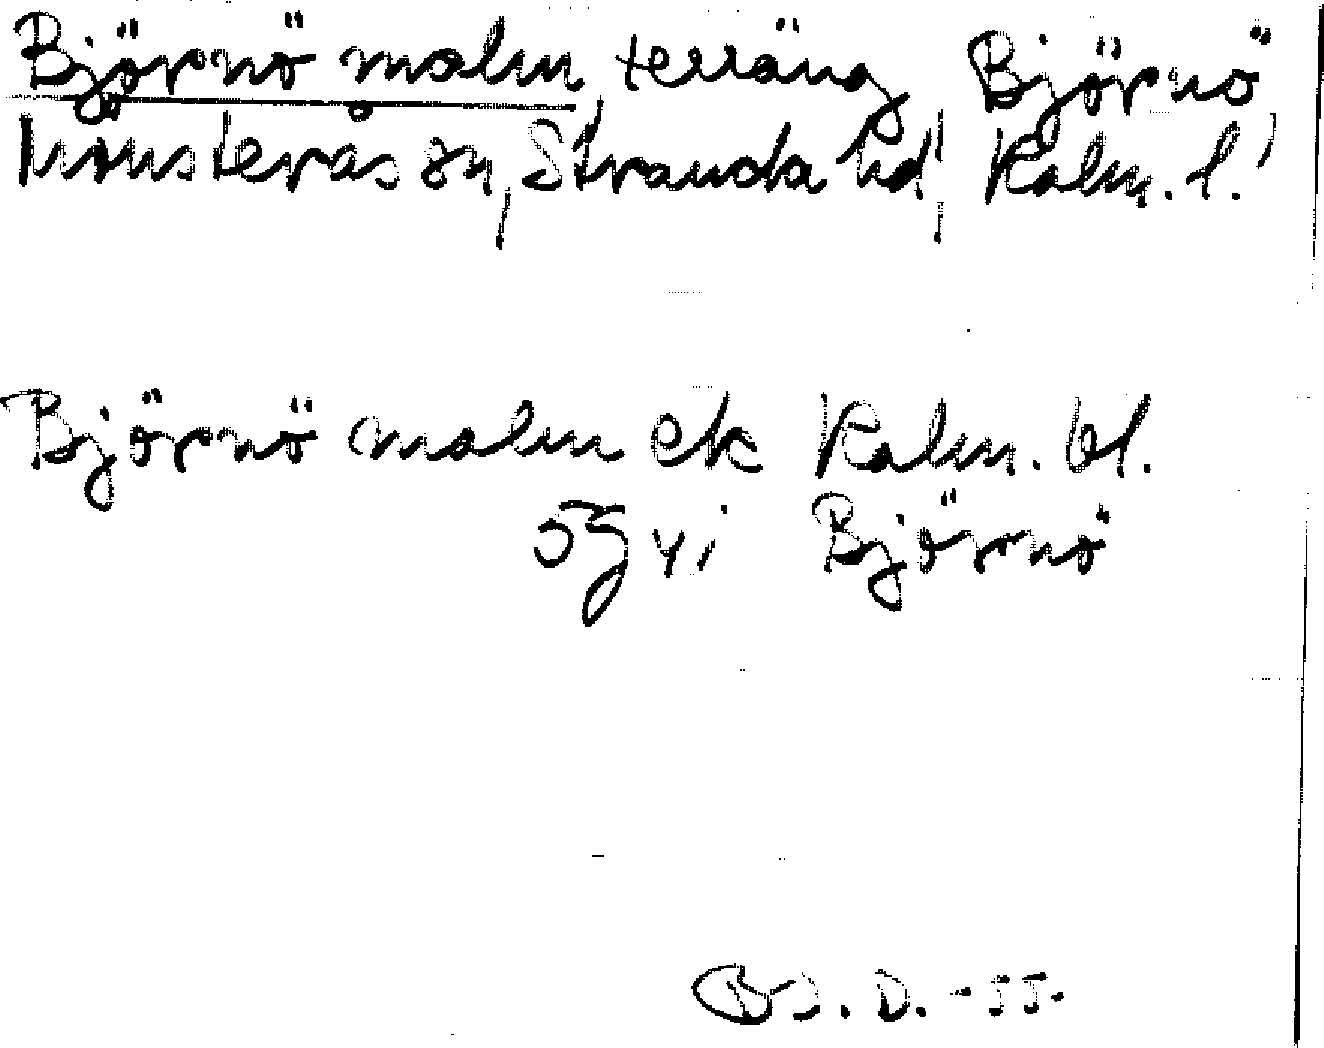 Björnö malm, terräng, Björnö,
Mönsterås sn, Stranda hd, Kalm. l.
Björnö malm ek Kalm. bl.
5g yi Björnö
B.J.D. -55.